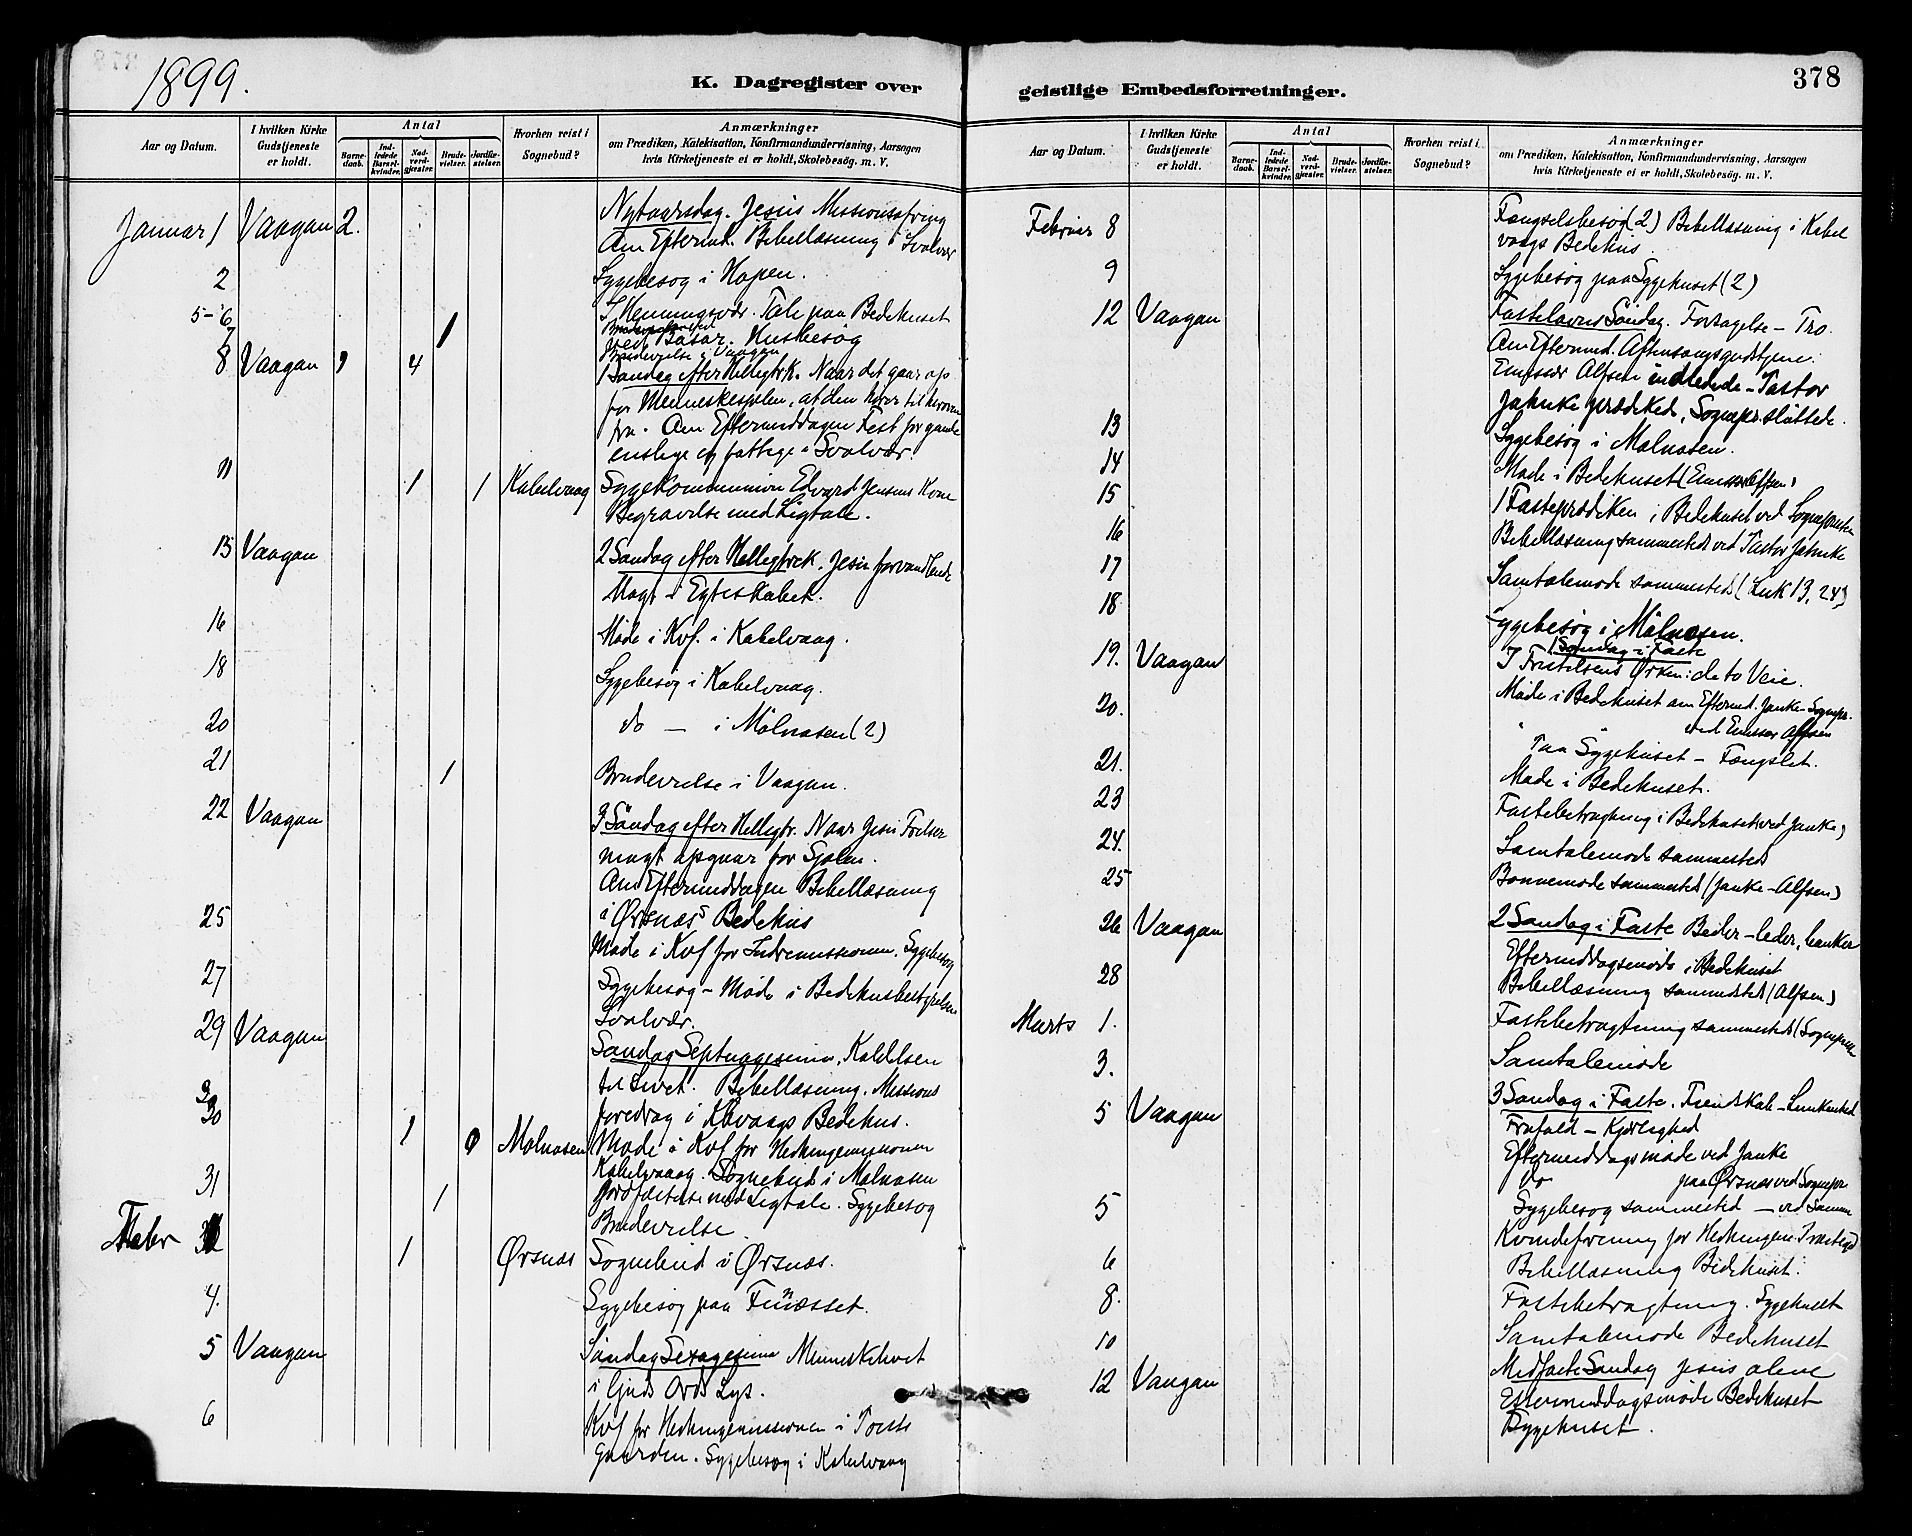 1899.
K. Dagregister over
Aar og Datum.
I hvilken Kirke Gudstjeneste er holdt.
Antal
Barnedaab.
Indledede Barselkvinder.
Nadverdgjæster.
Brudevielser.
Jordfæstelser.
Hvorhen reist i Sognebud?
Anmærkninger
om Prædiken, Katekisation, Konfirmandundervisning, Aarsagen
hvis Kirketjeneste ei er holdt, Skolebesög. m. V.
Januar 1 Vaagan 2. Nytaarsdag. Jesus
Am Eftermd. Bibellæsning i Svolvær
2 Sygebesøg i Hopen.
5-6 I Henningsvær. Tale paa Bedehuset
7 1 ved Basar. Husbesøg
Brudevielse i Vaagan
8 Vaagan 1 4 1 Søndag efter Helligtrk. Naar det gaar op
for Menneskesjelen, at den hører til heroven
fra. Am Eftermiddagen Fest for gamle
enslige og fattige i Svolvær.
11 1 1 Kabelvaag Sygekommunion Edvard Jensens Kone
Begravelse med Ligtale.
15 Vaagan 2 Søndag efter Helligtrek. Jesu forvandlende
Magt i Egteskabet.
16 Møde i Kvf. i Kabelvaag.
18 Sygebesøg i Kabelvaag.
20 do — i Mølnosen (2)
21 1 Brudevielse i Vaagan.
22 Vaagan 3 Søndag efter Helligtr. Naar Jesu Frelser
magt opgaar for Sjelen.
Am Eftermiddagen Bibellæsning
i Ørsnæs Bedehus
25 Møde i Kvf for Indremissionen. Sygebesøg
27 Sygebesøg - Møde i Bedehusbestyrelsen
Svolvær.
29 Vaagan Søndag Septuagesima. Kaldelsen
til Livet. Bibellæsning. Missions
foredrag i Kbvaags Bedehus.
30 1 Molnosen Møde i Kvf for Hedningemissionen
Kabelvaag. Sognebud i Molnosen
31 1 Jordfæstelse med Ligtale. Sygebesøg
Brudevielse.
Febr 1 Ørsnæs Sognebud i Ørsnæs.
4. Sygebesøg paa Finnæsset.
5 Vaagan Søndag Sexagesima Menneskelivet
i Guds Ords Lys.
6 Kvf for Hedningemissionen i
Gaarden. Sygebesøg i Kabelvaag
geistlige Embedsforretninger.
378
Aar og Datum.
I hvilken Kirke Gudstjeneste er holdt.
Antal
Barnedaab.
Indledede Barselkvinder.
Nadverdgjæster.
Brudevielser.
Jordfæstelser.
Hvorhen reist i Sognebud?
Anmærkninger
om Prædiken, Katekisation, Konfirmandundervisning, Aarsagen
hvis Kirketjeneste ei er holdt, Skolebesög. m. V.
Februar 8 Fængselsbesøg (2) Bibellæsning i Kabel
vaags Bedehus.
9 Sygebesøg paa Sygehuset (2)
12 Vaagan Fastelavns Søndag. Forsagelse - Tro.
Am Eftermd. Aftensangsgudstjene.
Emissær Alfsen indledede - Pastor
Jahnke prædiked, Sognepr. sluttede.
13 Sygebesøg i Molnosen.
14 Møde i Bedehuset (Emissær Alfsen)
15 1 Fasteprædiken i Bedehuset ved Sognepresten
16 Bibellæsning sammesteds ved Pastor Jahnke
17 Samtalemøde sammesteds (Luk 13, 24)
18 Sygebesøg i Mølnosen.
1 Søndag i Faste
19. Vaagan I Fristelsens Ørken: de to Veie.
20. Møde i Bedehuset am Eftermd. Janke - Sognepr.
ved Emissær Alfsen
21. Paa Sygehuset - Fængslet.
23 Møde i Bedehuset.
Fastebetragtning i Bedehuset (ved Janke)
24. Samtalemøde sammesteds
25 Bønnemøde sammested (Janke - Alfsen)
26 Vaagan 2 Søndag i Faste Beder - leder, banker
Eftermiddagsmøde i Bedehuset
28 Bibellæsning sammesteds (Alfsen)
Marts 1. Fastebetragtning sammesteds (Sognepresten
3. Samtalemøde
5 Vaagan 3 Søndag i Faste. Fiendskab - Lunkenhed
Frafald - Kjærlighed
Eftermiddagsmøde ved Janke
do paa Ørsnæs ved Sognepr
5 Sygebesøg sammested — ved Samme
Kvindeforening for Hedningene
6 Bibellæsning Bedehuset.
8. Fastebetragtning. Sygehuset
10 Samtalemøde Bedehuset
12 Vaagan Midfaste Søndag Jesus alene
Eftermiddagsmøde Bedehuset
Sygehuset.